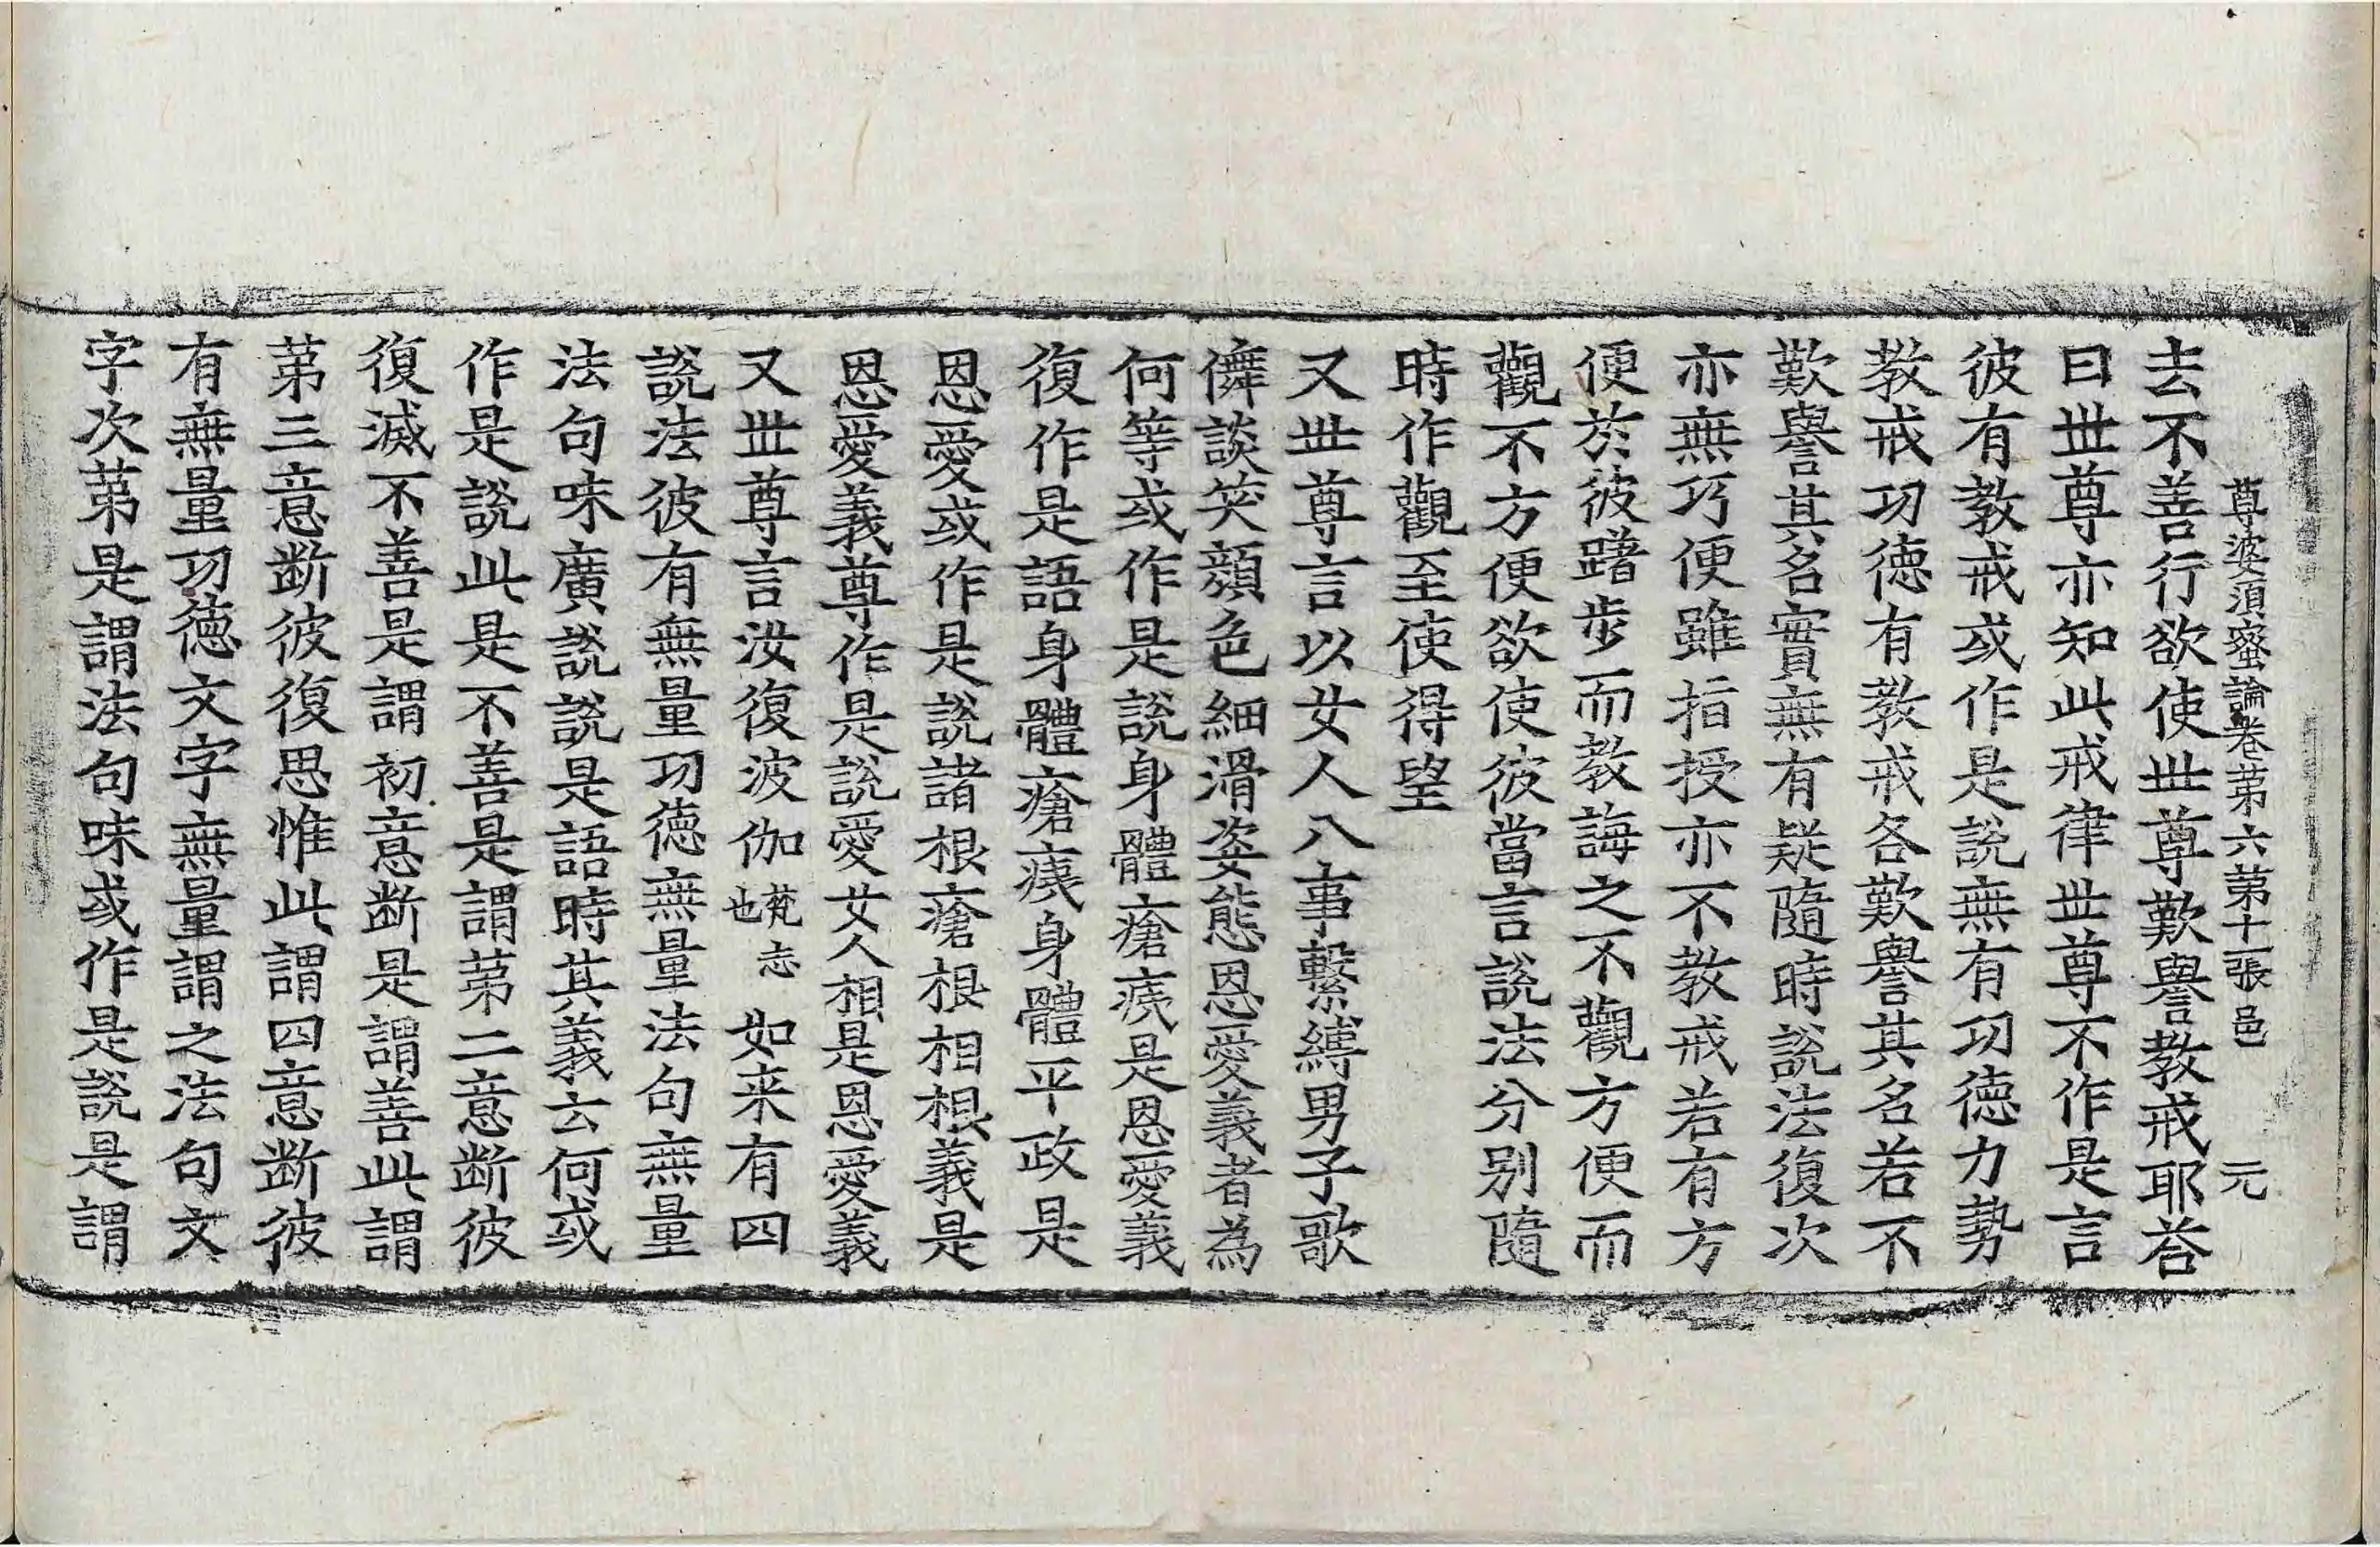 尊婆須蜜論卷第六第十一張邑 元
去不善行欲使世尊歎譽教戒耶荅
曰世尊亦知此戒律世尊不作是言
彼有教戒或作是説無有功德力勢
教戒功德有教戒各歎譽其名若不
歎譽其名實無有疑隨時説法復次
亦無巧便雖指授亦不教戒若有方
便於彼躇步而教誨之不觀方便而
觀不方便欲使彼當言説法分别隨
時作觀至使得望
又世尊言以女人八事繫縛男子歌
儛談笑顔色細滑姿態恩愛義者為
何等或作是説身體瘡痍是恩愛義
復作是語身體瘡痍身體平政是
恩愛或作是説諸根瘡根相根義是
恩愛義尊作是説愛女人相是恩愛義
又世尊言汝復波伽梵志也如来有四
説法彼有無量功德無量法句無量
法句味廣説説是語時其義云何或
作是説此是不善是謂第二意断彼
復滅不善是謂初意断是謂善此謂
第三意断彼復思惟此謂四意断彼
有無量功德文字無量謂之法句文
字次第是謂法句味或作是説是謂